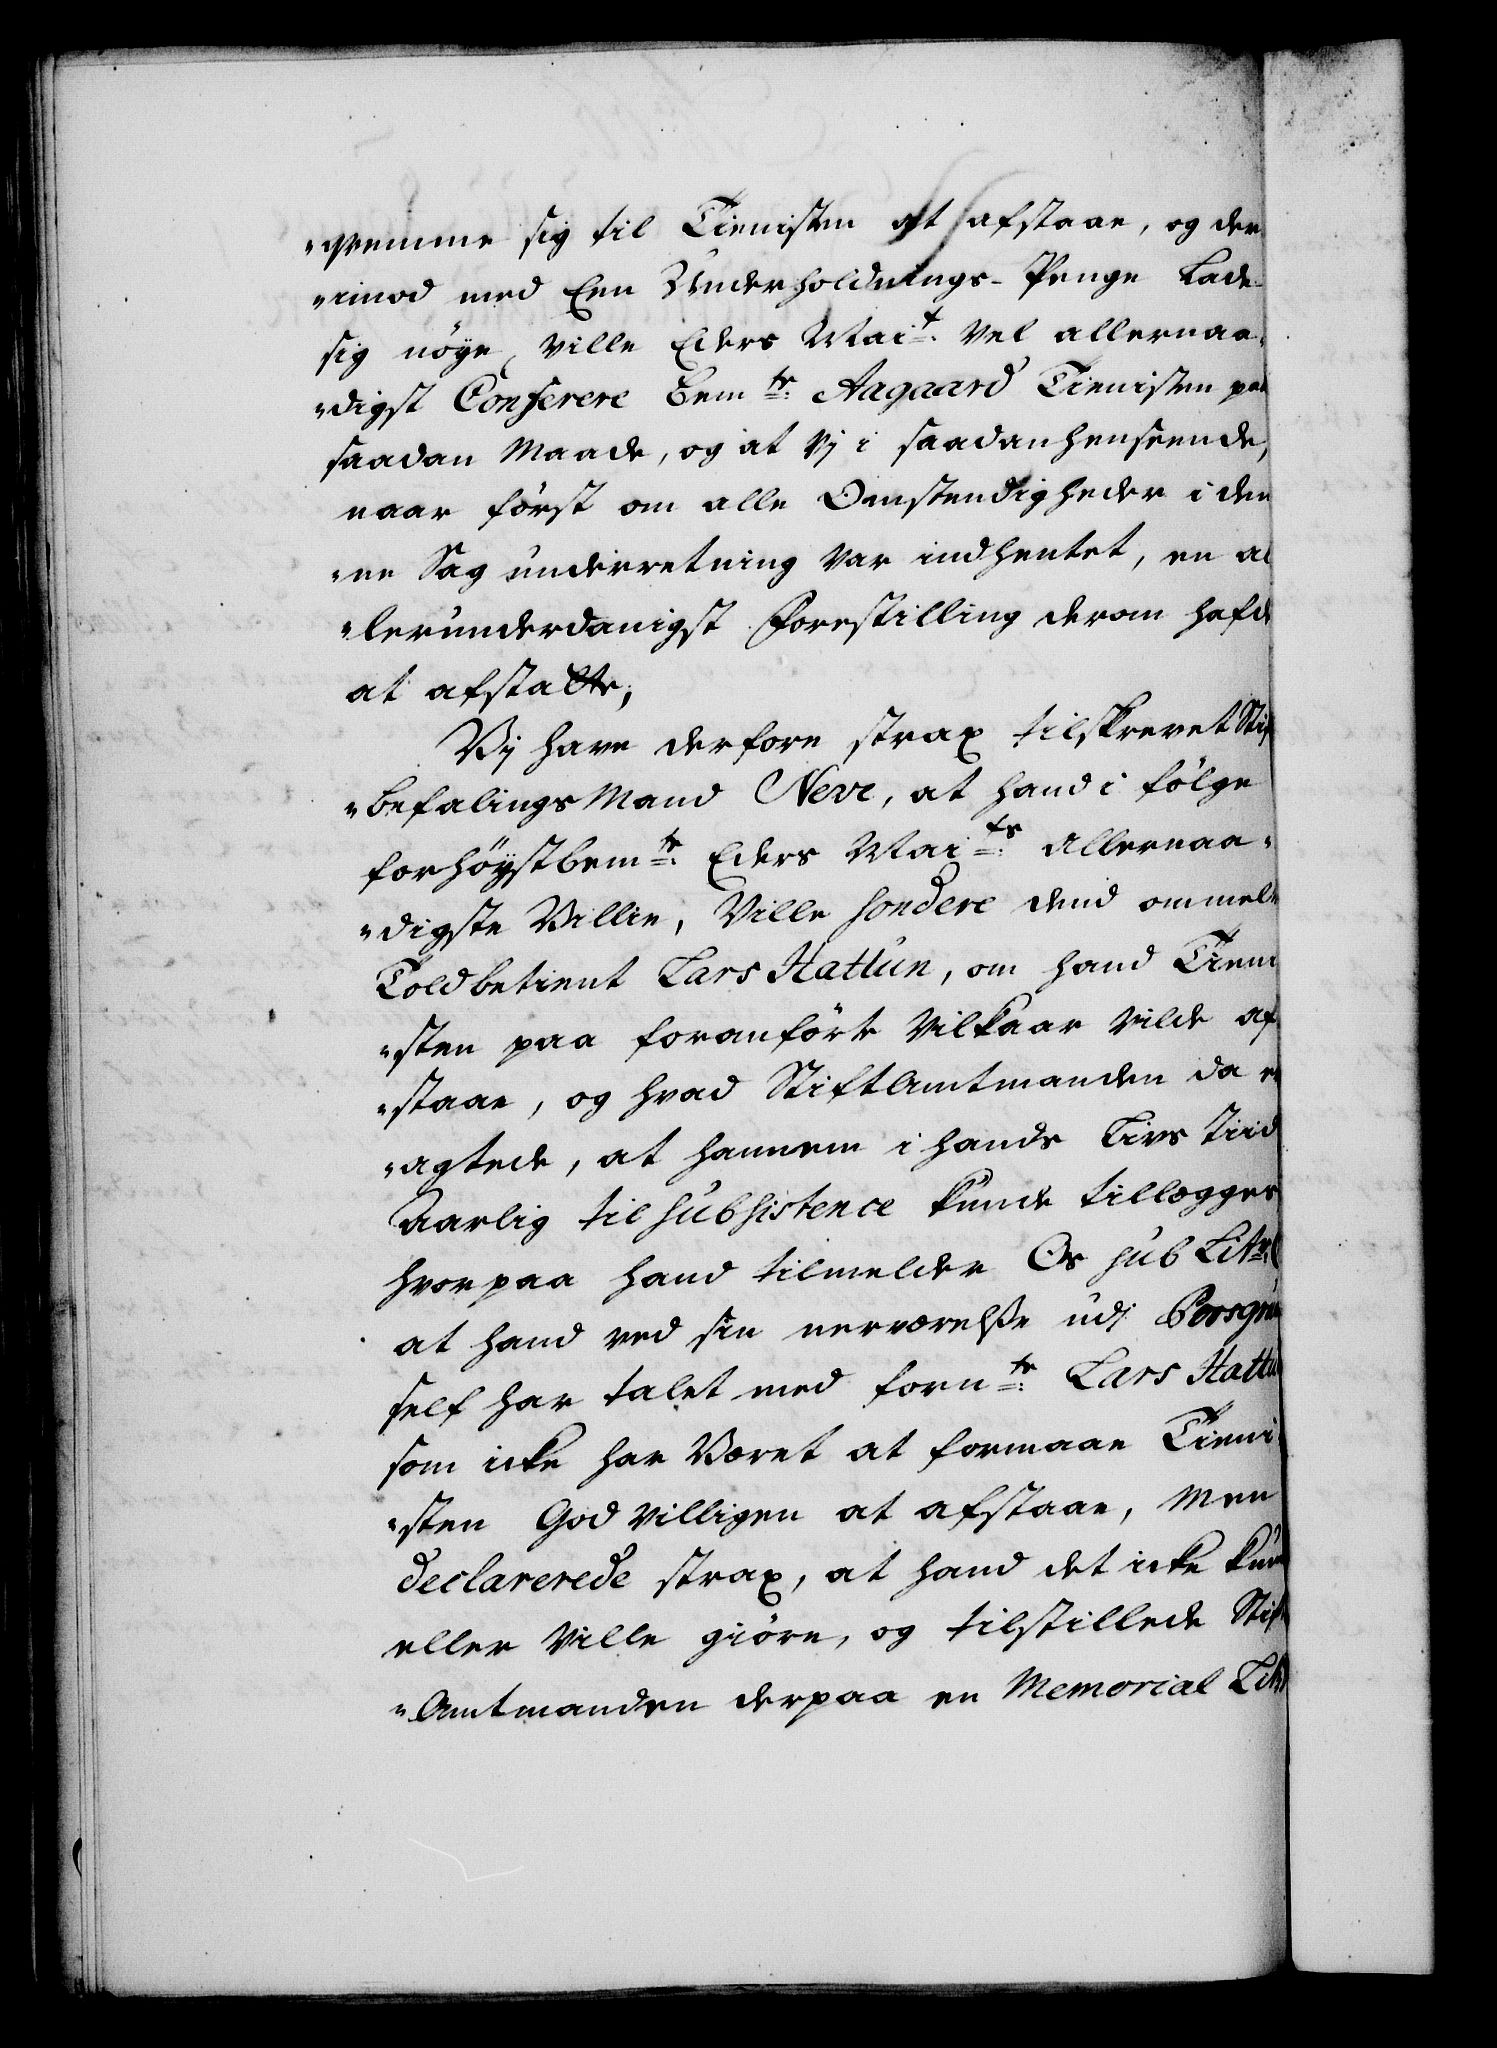 "qvemme sig til Tienisten at afstaae, og der
"imod med Een Underholdnings-Penge Lade
sig nöye, ville Eders Mai:t vel allernaa-
"digst Conferere bem:te Aagaard Tienisten paa
saadan Maade, og at Vj i saadan henseende,
naar först om alle Omstendigheder i den
"ne Sag underretning var indhentet, en al
"lerunderdanigst Forestilling derom hafde
at afstatte;
Vij have derfore strax tilskrevet Stif
"befalingsMand Neve, at hand i fölge
forhöystbem:te Eders Mai:ts Allernaa-
"digste Villie, Ville sondere dend ommelte
Toldbetient Lars Hattun, om hand Tieni
"sten paa foranförte Vilkaar vilde af
"staae, og hvad StiftAmtmanden da er
"agtede, at hannem i hands Livs Tiid
Aarlig til subsistence kunde tillægges
hvorpaa hand tilmelder Os sub Litr:
at hand ved sin nerværelsse udj Porsgru
self har talet med forn:te Lars Hattu
som icke har Været at formaae Tieni-
"sten Godvilligen at afstaae, Men
declarerede strax, at hand det icke kun
eller Ville giöre, og tilstillede Stift
"Amtmanden derpaa en Memorial Litr